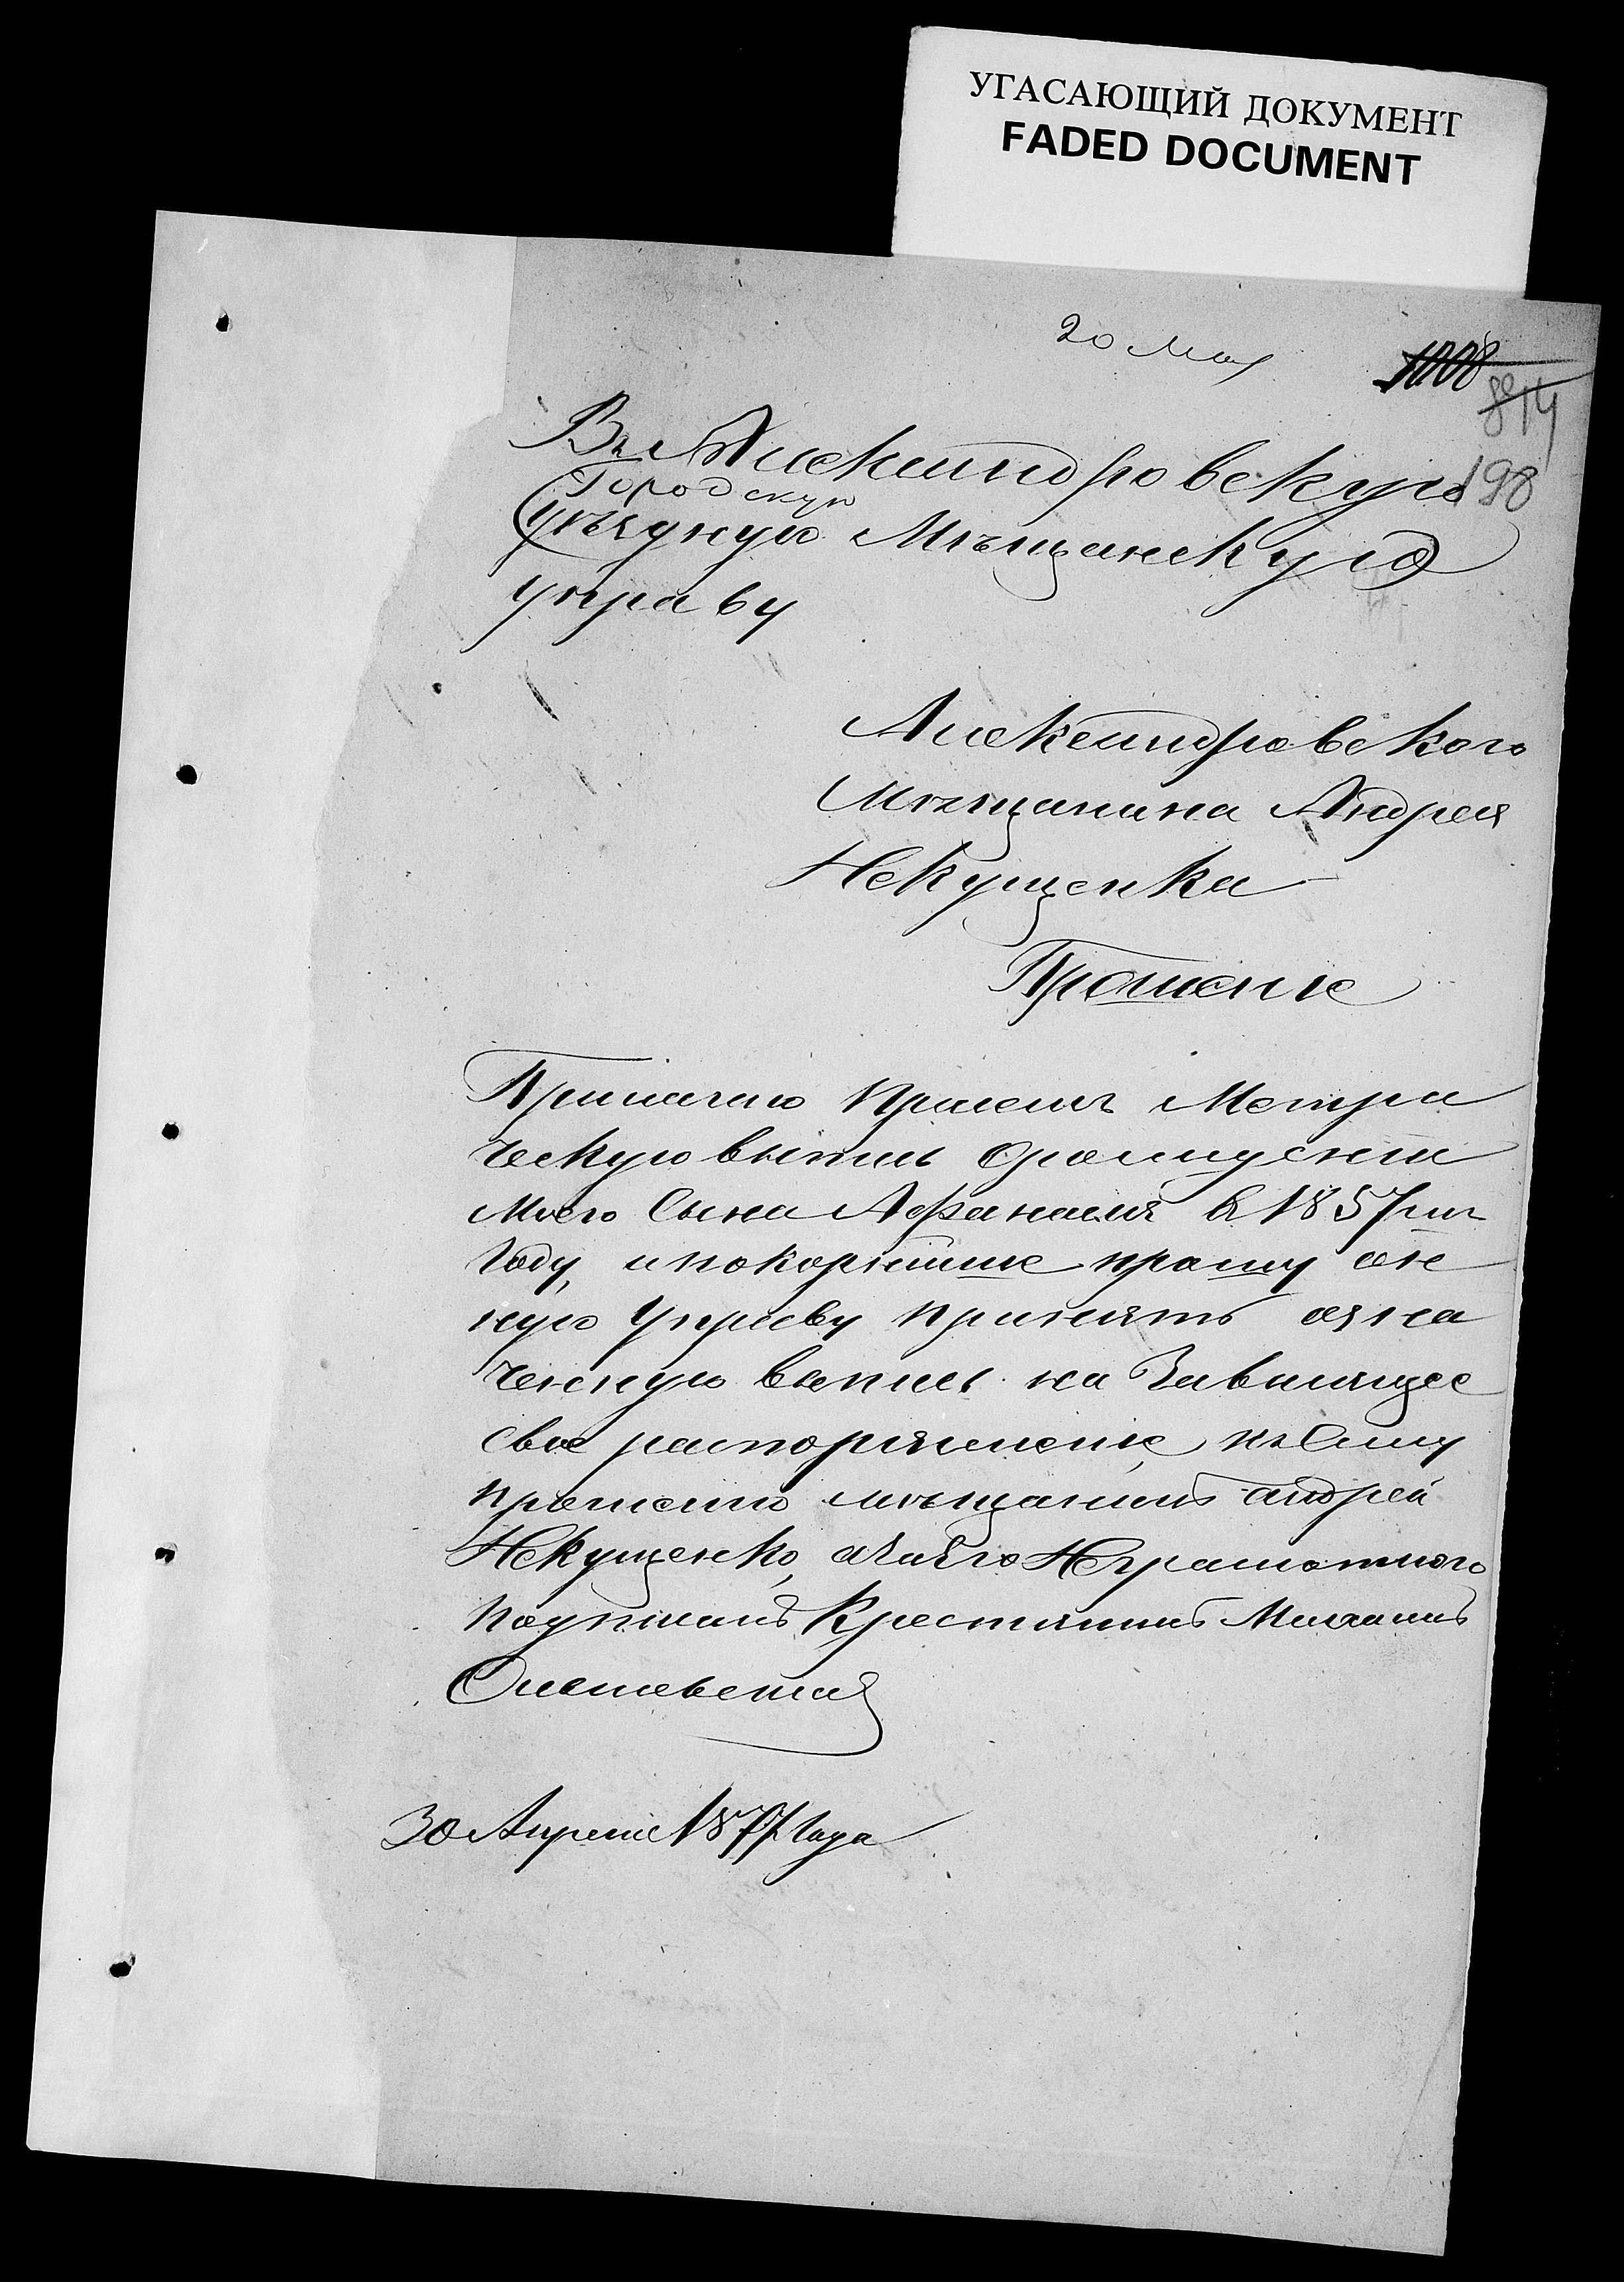 УГАСАЮЩИЙ ДОКУМЕНТ
FADED DOCUMENT
20 Мая
1008
814
198
Въ Александровскую
Городскую
уѣздную Мѣщанскую
управу
Александровского
Мѣщанина Андрея
Некущенка
Прошение
Прилагаю при семъ Метри
ческую выпись о рождении
Моего Сына Афанасия в 1857 мъ
Году, и покорнѣйше прошу
ную Управу принять озна
ченную выпись на Зависящее
свое распоряжение, къ Сему
прошению мѣщанинъ андрей
Некущенко, а за его Неграмотного
подписалъ Крестянинъ Михаилъ
30 Апреля 1877 Года